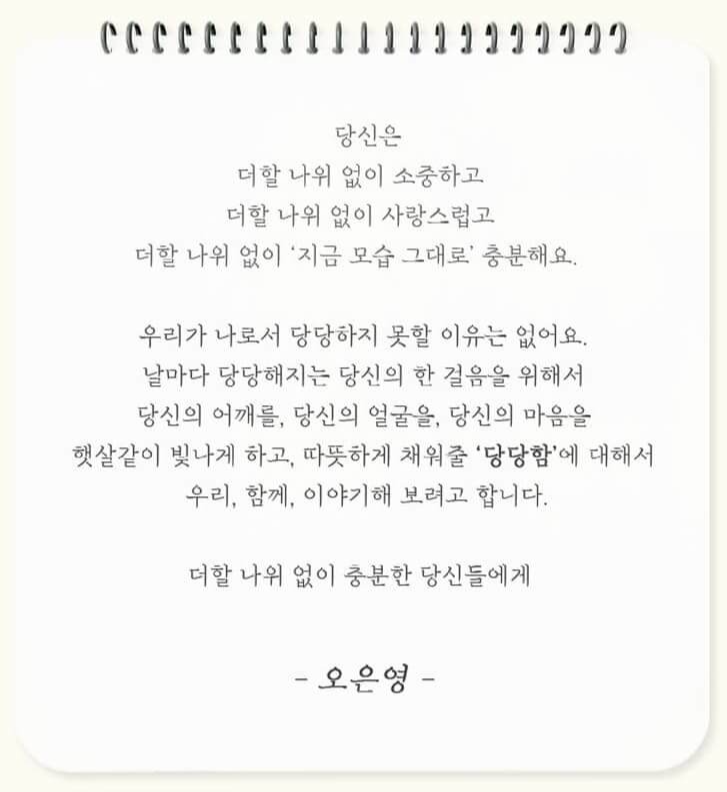 당신은
더할 나위 없이 소중하고
더할 나위 없이 사랑스럽고
더할 나위 없이 ‘지금 모습 그대로’ 충분해요.
우리가 나로서 당당하지 못할 이유는 없어요.
날마다 당당해지는 당신의 한 걸음을 위해서
당신의 어깨를, 당신의 얼굴을, 당신의 마음을
햇살같이 빛나게 하고, 따뜻하게 채워줄 ‘당당함’에 대해서
우리, 함께, 이야기해 보려고 합니다.
더할 나위 없이 충분한 당신들에게
- 오은영 -